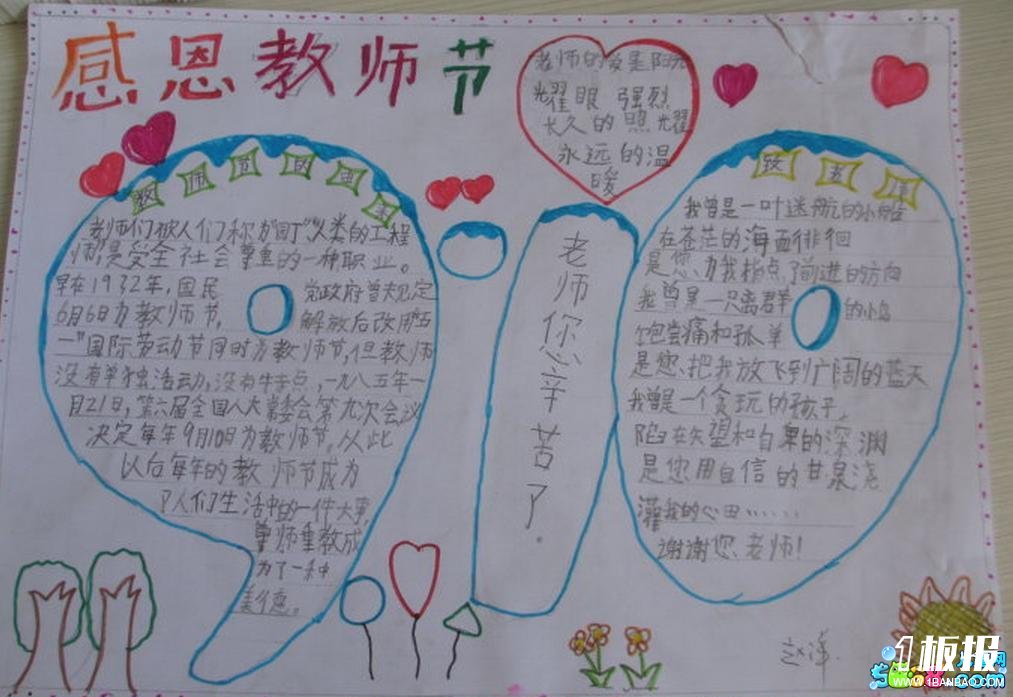 感恩教师节
老师的爱是阳光
耀眼 强烈
长久的照耀
永远的温
暖
教师节的由来
老师们被人们称为"园丁""人类的工程
师"是受全社会尊重的一种职业。
早在1932年,国民党政府曾规定
6月6日为教师节,解放后改用"五
一"国际劳动节同时为教师节,但教师
没有单独活动,没有特点,一九八五年一
月21日,第六届全国人大常委会第九次会议
决定每年9月10日为教师节,从此
以后每年的教师节成为
了人们生活中的一件大事,
尊师重教成
为了一种
美德。
老师您辛苦了.
致老师
我曾是一叶迷航的小船
在苍茫的海面徘徊
是您为我指点了前进的方向
我曾是一只离群的小鸟
饱尝痛和孤单
是您把我放飞到广阔的蓝天
我曾是一个贪玩的孩子,
陷在失望和自卑的深渊
是您用自信的甘泉浇
灌我的心田......
谢谢您,老师!
1板报
WWW.1BANBAO.COM